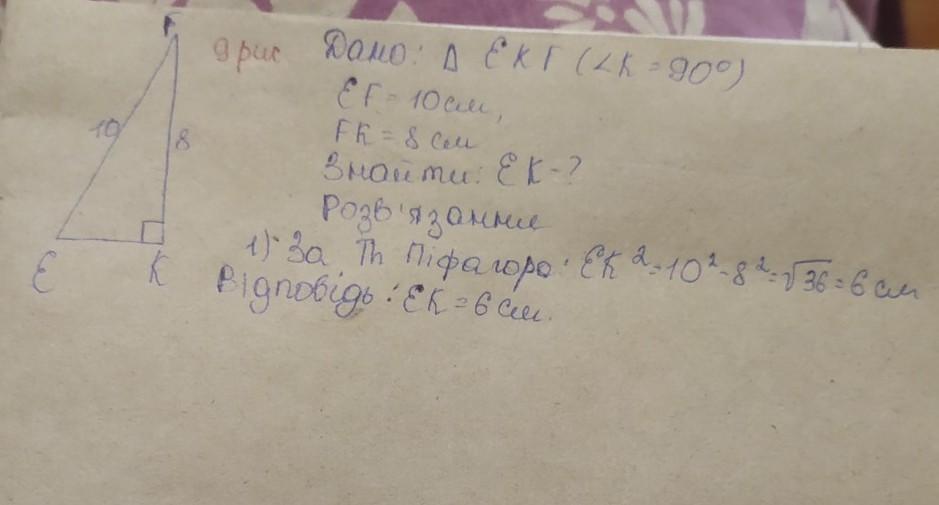 F
9 рис
Дано: Δ EKF (∠K = 90°)
EF = 10см,
10
8
FK = 8 см
Знайти: EK - ?
Розв'язання
1) За Th Піфагора: EK² = 10² - 8² = √36 = 6 см
E
K
Відповідь: EK = 6 см.